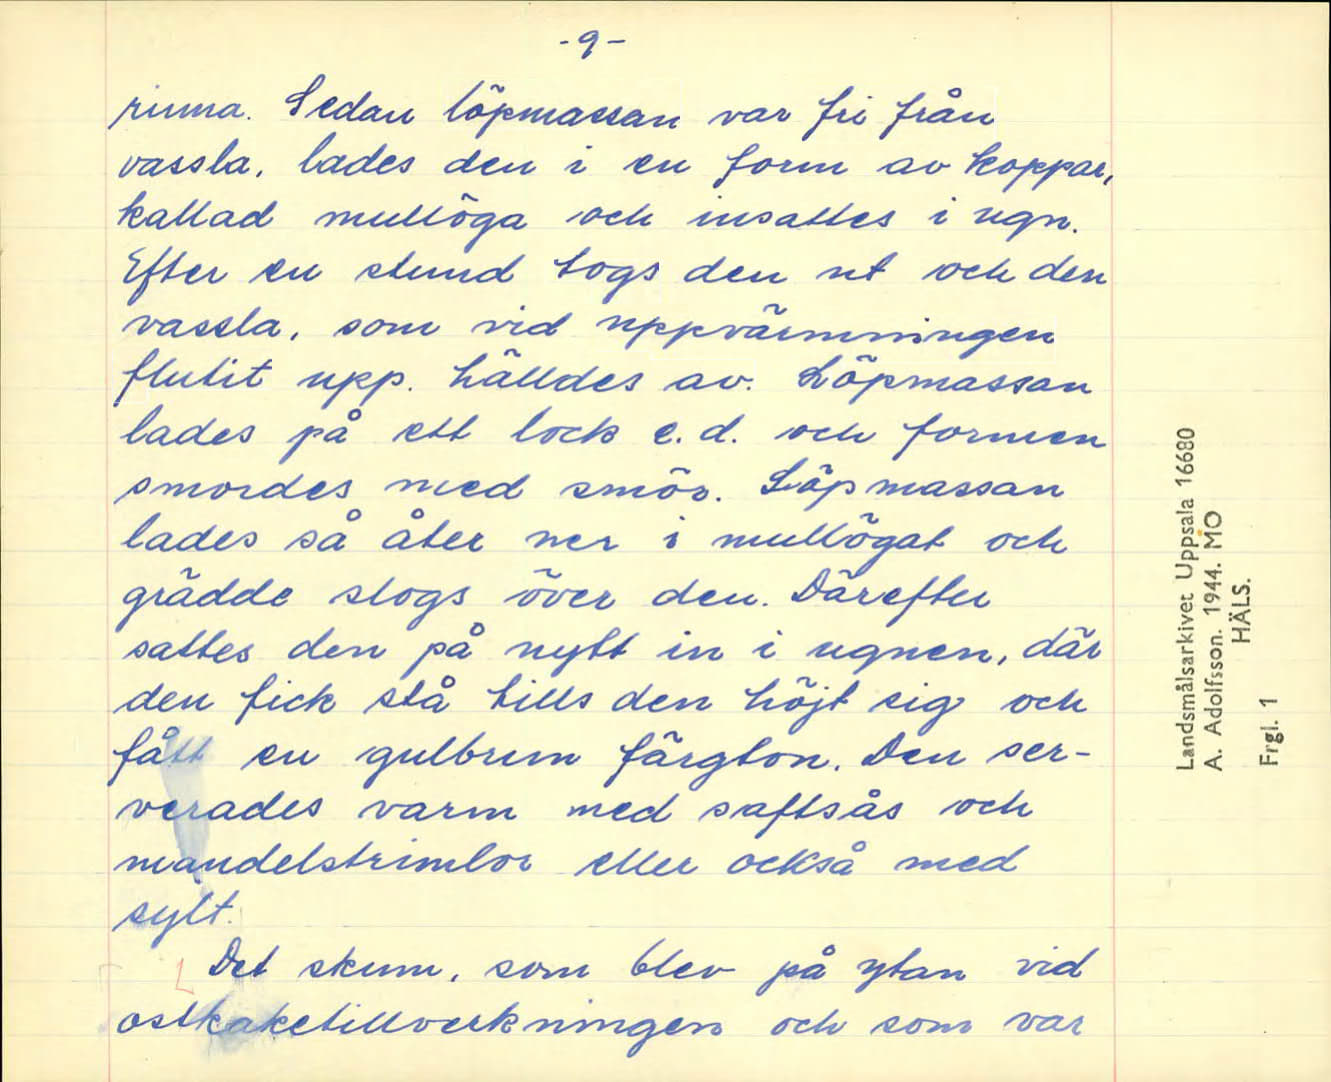 -9-
rinna. Sedan löpmassan var fri från
vassla, lades den i en form av koppar,
kallad mullöga och insattes i ugn.
Efter en stund togs den ut och den
vassla, som vid uppvärmningen
flutit upp. hälldes av. Löpmassan
lades på ett lock e.d. och formen
smordes med smör. Löpmassan
lades så åter ner i mullögat och
grädde slogs över den. Därefter
sattes den på nytt in i ugnen, där
den fick stå tills den höjt sig och
fått en gulbrun färgton. Den ser-
verades varm med saftsås och
mandelstrimlor eller också med
sylt.
Det skum, som blev på ytan vid
ostkaketillverkningen och som var
Landsmålsarkivet Uppsala 16680
A. Adolfsson. 1944. MO
HÄLS.
Frgl. 1